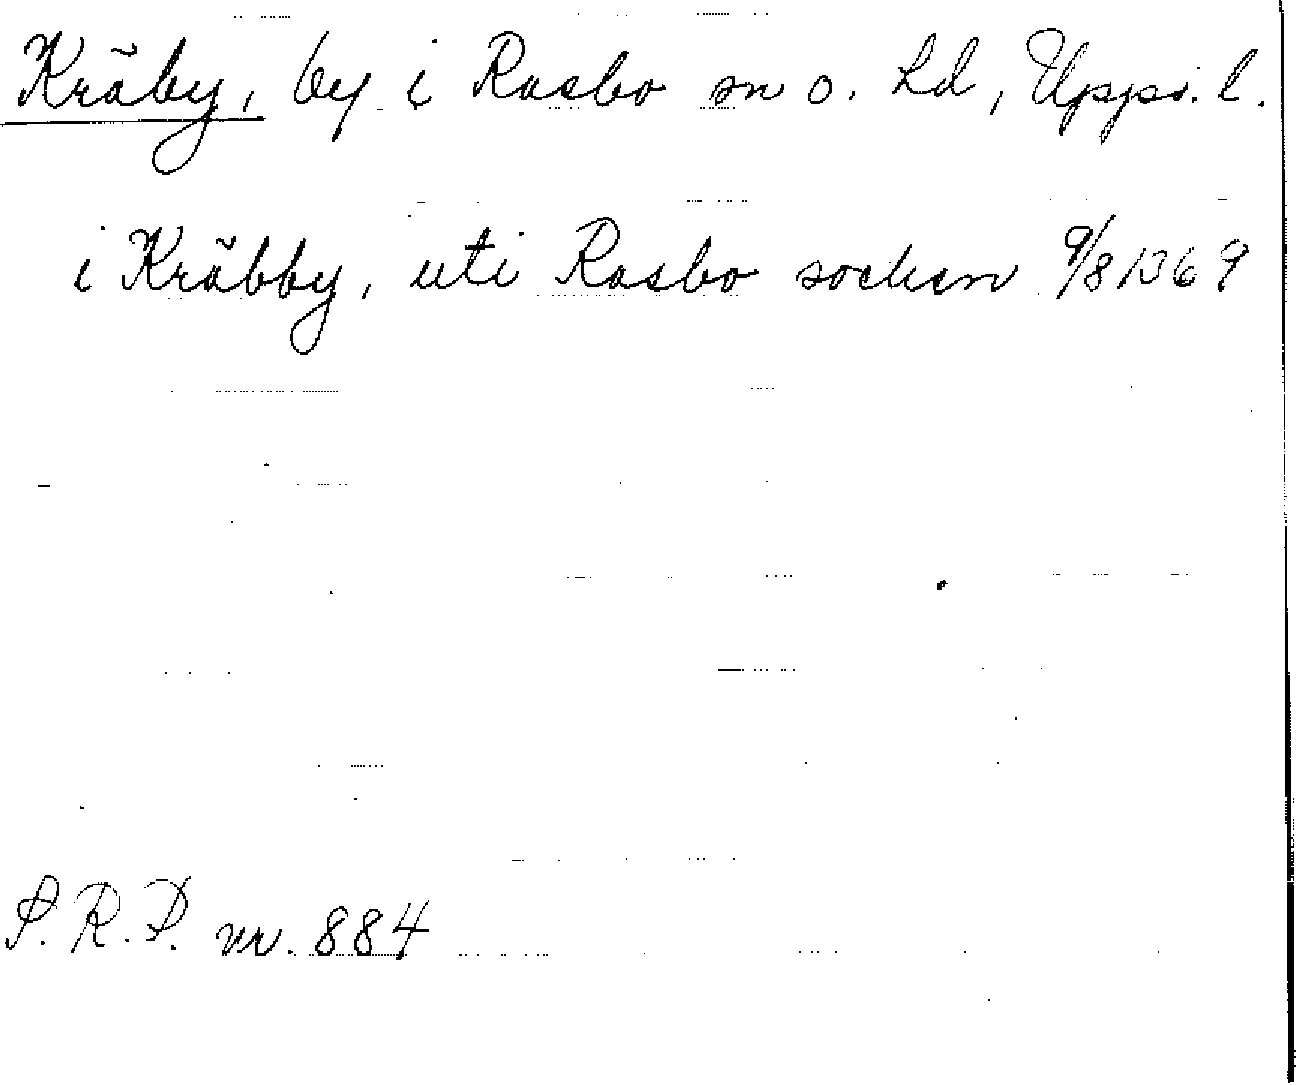 Kräby, by i Rasbo sn o. hd, Upps. l.
i Kräbby, uti Rasbo socken 9/8 1369
S. R. P. nr. 884